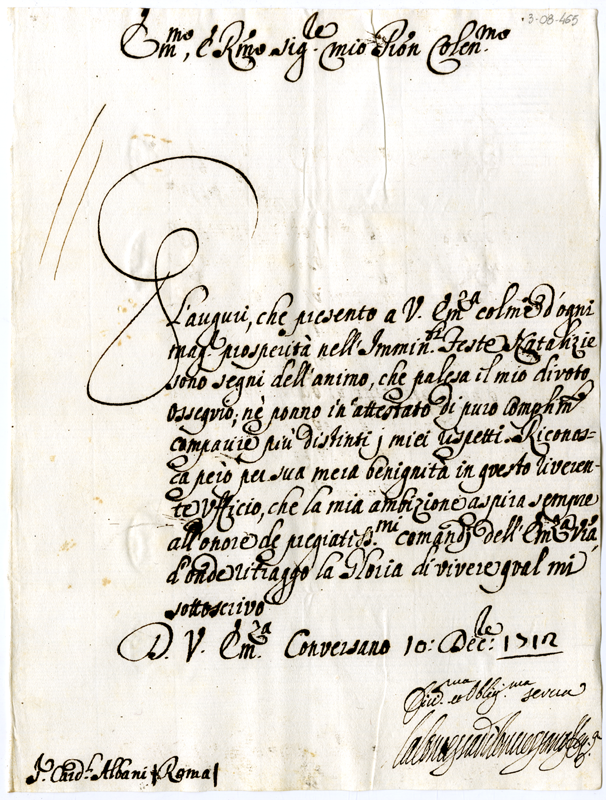 3-08-465
Em.mo, e Rmo Sig.r mio Pròn Colen.mo
L'auguri, che presento a V. Em.za colmi d'ogni
mag.r prosperità nell'Immin.ti Feste Natalizie
sono segni dell'animo, che palesa il mio divoto
ossequio, nè ponno in attestato di puro Complim.
comparire più distinti i miei rispetti. Riconos=
ca però per sua mera benignità in questo riveren=
te Ufficio, che la mia ambizione aspira sempre
all'onore de pregiatiss.mi comandi dell'Em.za Vra
d'onde ritraggo la Gloria di vivere qual mi
sottoscrivo
D. V. Em.za Conversano 10: Dec.le 1712
Div.ma et Oblig.ma serva
S.r Card.l Albani (Roma)